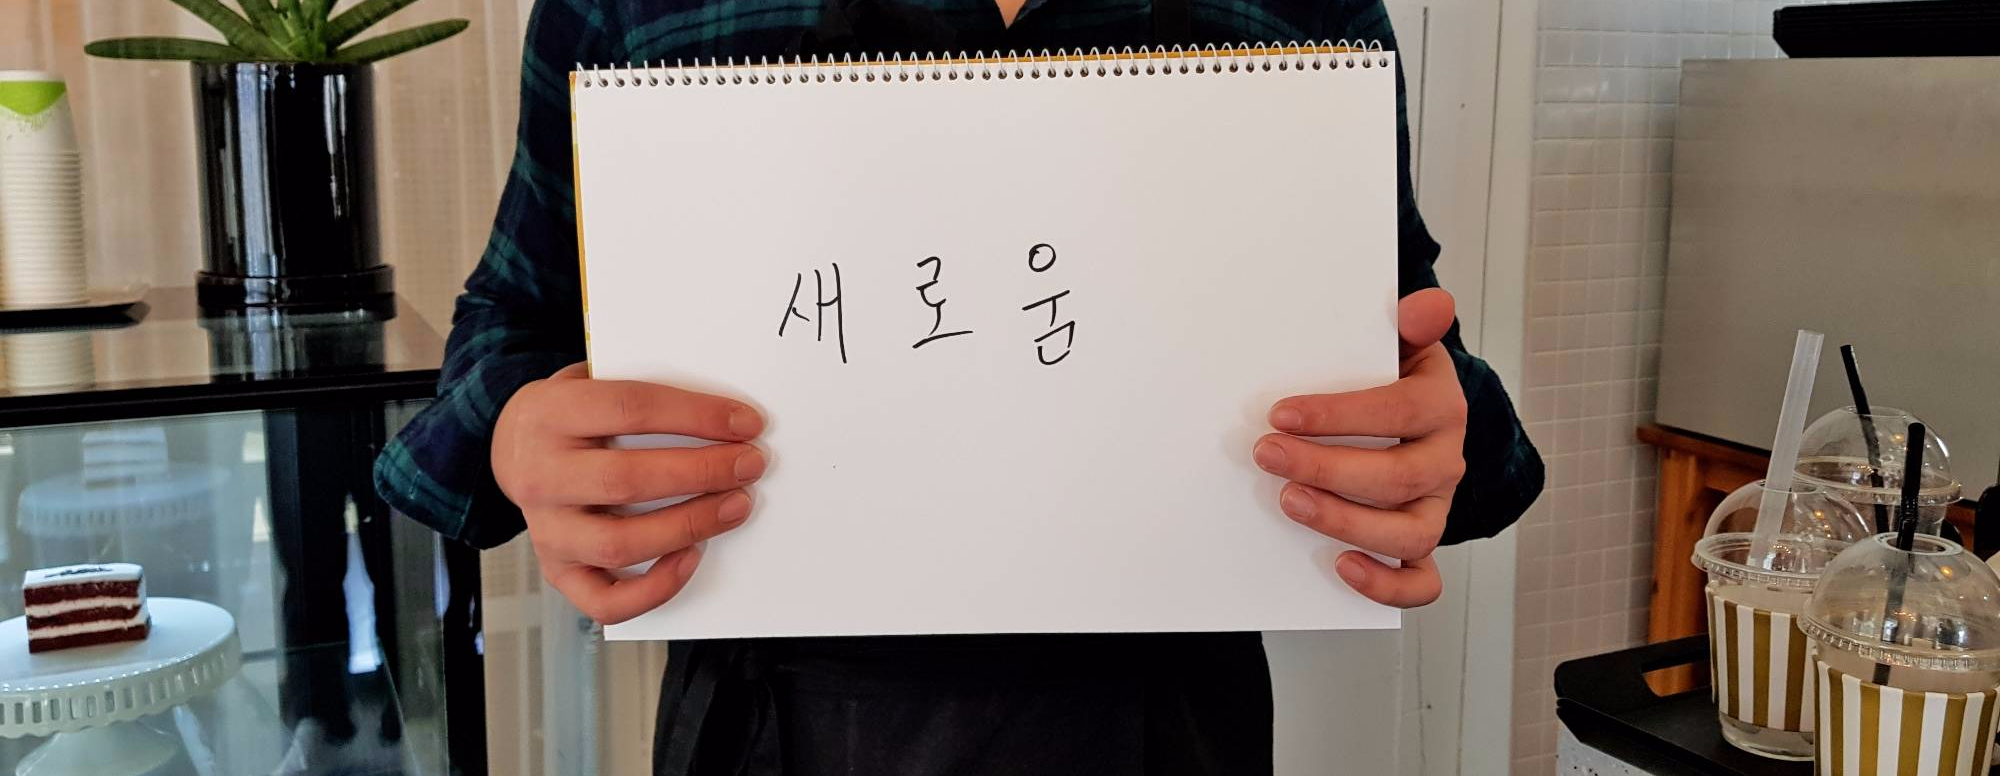 새로움